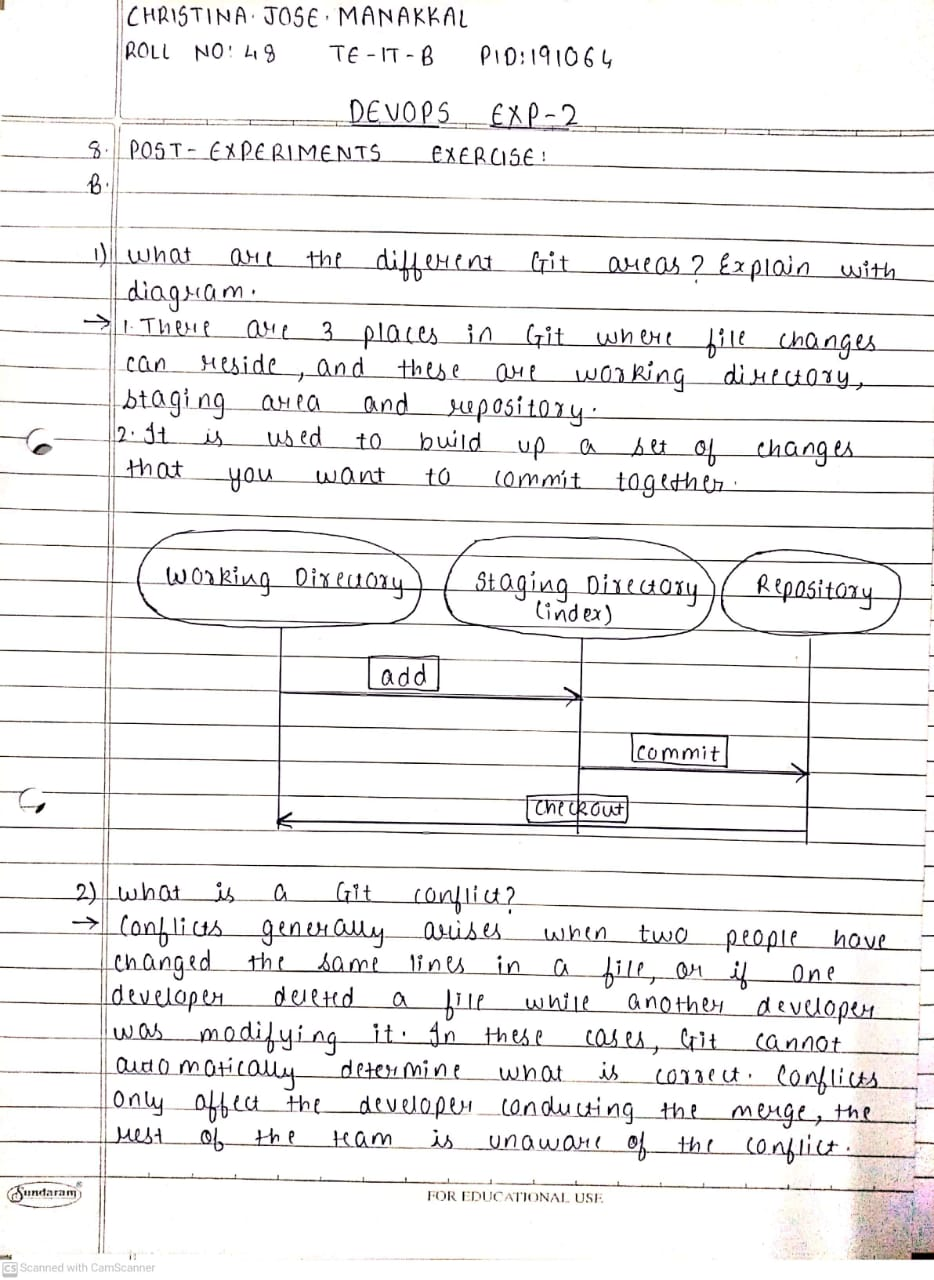 CHRISTINA. JOSE. MANAKKAL
ROLL NO: 48 TE-IT-B PID:191064
DEVOPS EXP-2
8. POST- EXPERIMENTS EXERCISE:
B.
1) what are the different Git areas? Explain with
diagram.
→ 1. There are 3 places in Git where file changes
can reside, and these are working directory,
staging area and repository.
2. It is used to build up a set of changes
that you want to commit together.
Working Directory
Staging Directory
(index)
Repository
add
commit
checkout
2) what is a Git conflict?
→ Conflicts generally arises when two people have
changed the same lines in a file, or if one
developer deleted a file while another developer
was modifying it. In these cases, Git cannot
automatically determine what is correct. Conflicts
only affect the developer conducting the merge, the
rest of the team is unaware of the conflict.
Sundaram
FOR EDUCATIONAL USE
CS Scanned with CamScanner